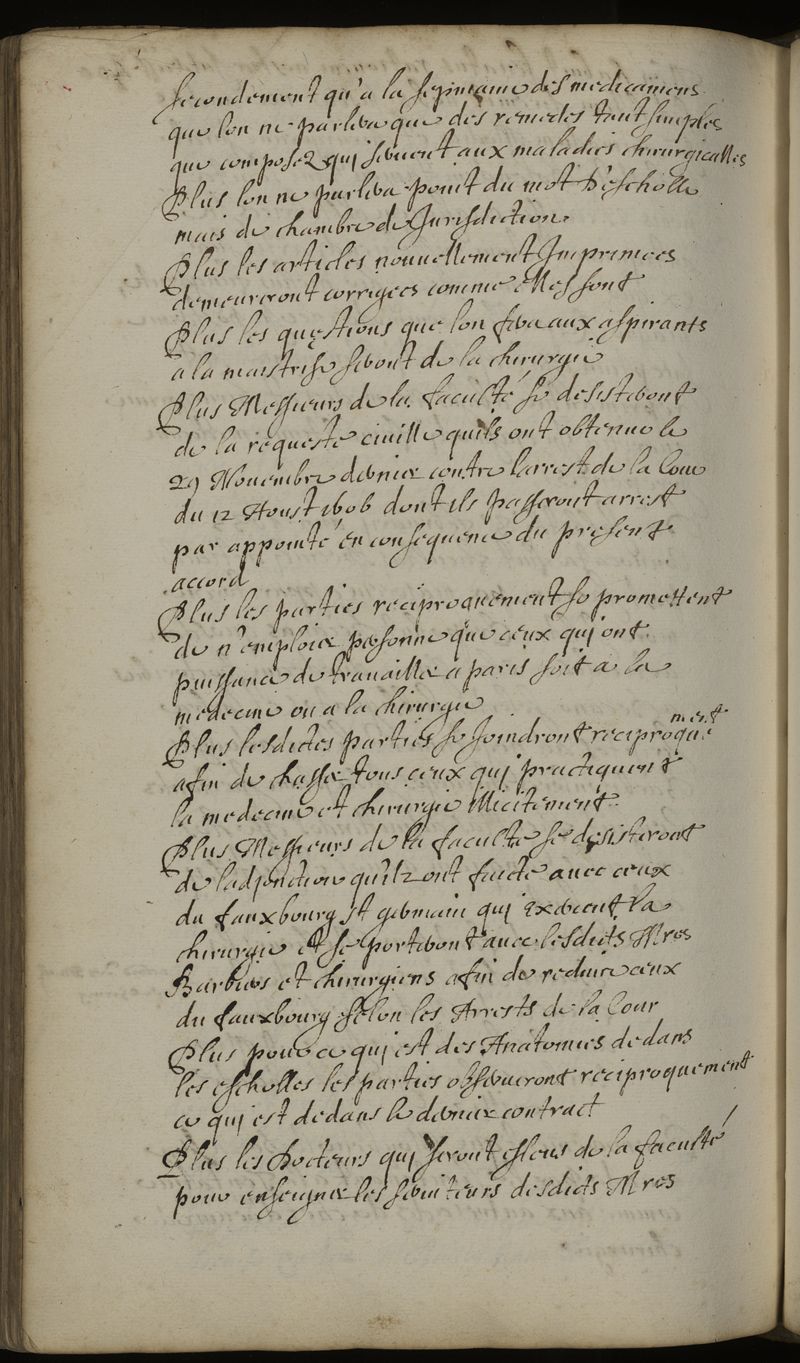 Secondement qu'a la sepmaine des medicamens
que lon ne parlera que des remedes tant simples
que composez qui servent aux maladies chirurgicalles
Plus lon ne parlera point du mot d'escholle
mais de chambre de Jurisdiction
Plus les articles nouvellement Imprimees
demeureront corrigees comme elles sont
Plus les questions que lon fera aux aspirants
a la maistrise seront de la chirurgie
Plus Messieurs de la faculté se desisteront
de la requeste civille quils ont obtenue le
29 Novembre dernier contre larrest de la Cour
du 12 Aoust 1606 dont ils passeront arrest
par appointé en consequence du present
accord
Plus les parties reciproquement se promettent
de n'emploier personne que ceux qui ont
puissance de travailler a paris soit a la
medecine ou a la chirurgie
Plus lesdictes parties se Joindront reciproquement
afin de chasser tous ceux qui practiquent
la medecine et chirurgie Illicitement
Plus Messieurs de la faculte se desisteront
de ladjonction qu'ilz ont faicte avec ceux
du fauxbourg st germain qui Exercent la
chirurgie et se porteront avec lesdicts Mres
Barbiers et chirurgiens afin de reduire ceux
du fauxbourg selon les Arrests de la Cour
Plus pour ce qui est des Anatomies dedans
les escholles les parties observeront reciproquement
ce qui est dedans le dernier contract
Plus les Docteurs qui seront esleus de la faculté
pour enseigner les serviteurs desdicts Mres